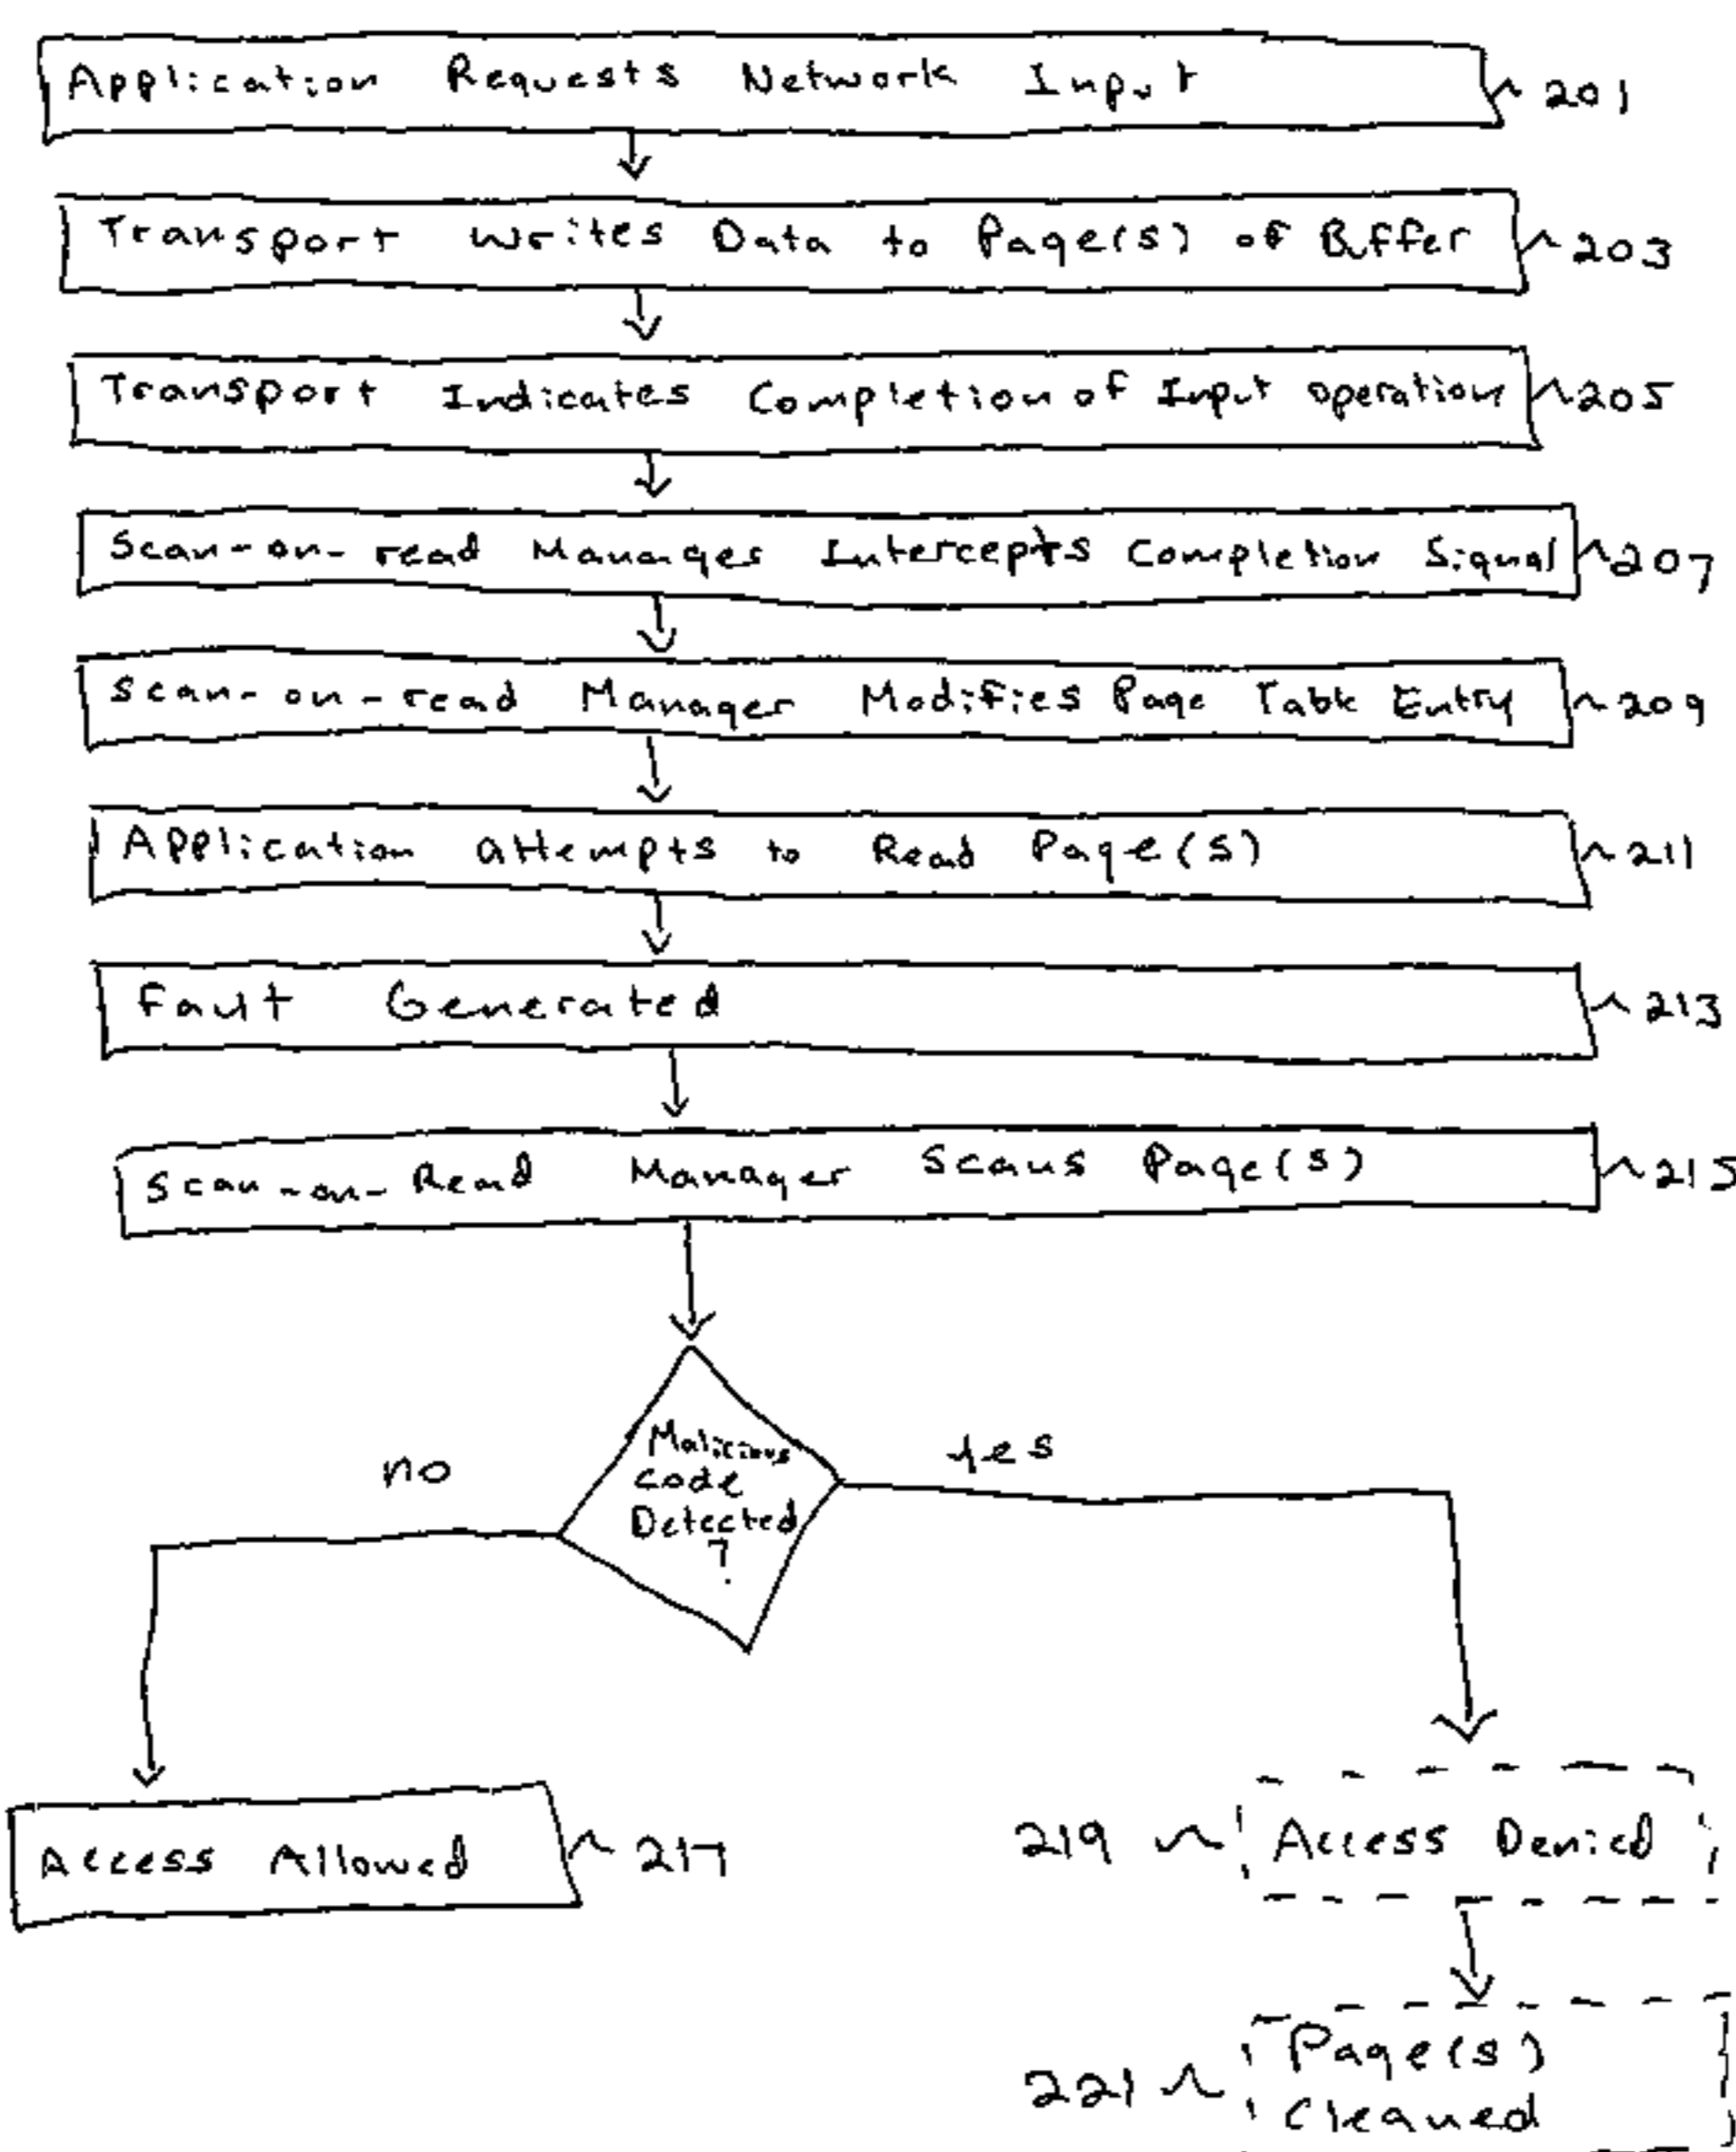 Application Requests Network Input 201
Transport Writes Data to Page(s) of Buffer 203
Transport Indicates Completion of Input operation 205
Scan-on-read Manages Intercepts Completion Signal 207
Scan-on-read Manager Modifies Page Table Entry 209
Application attempts to Read Page(s) 211
Fault Generated 213
Scan-on-Read Manager Scans Page(s) 215
Malicious
Code
Detected
?
no
yes
Access Allowed 217
219 Access Denied
221 Page(s)
Cleaned